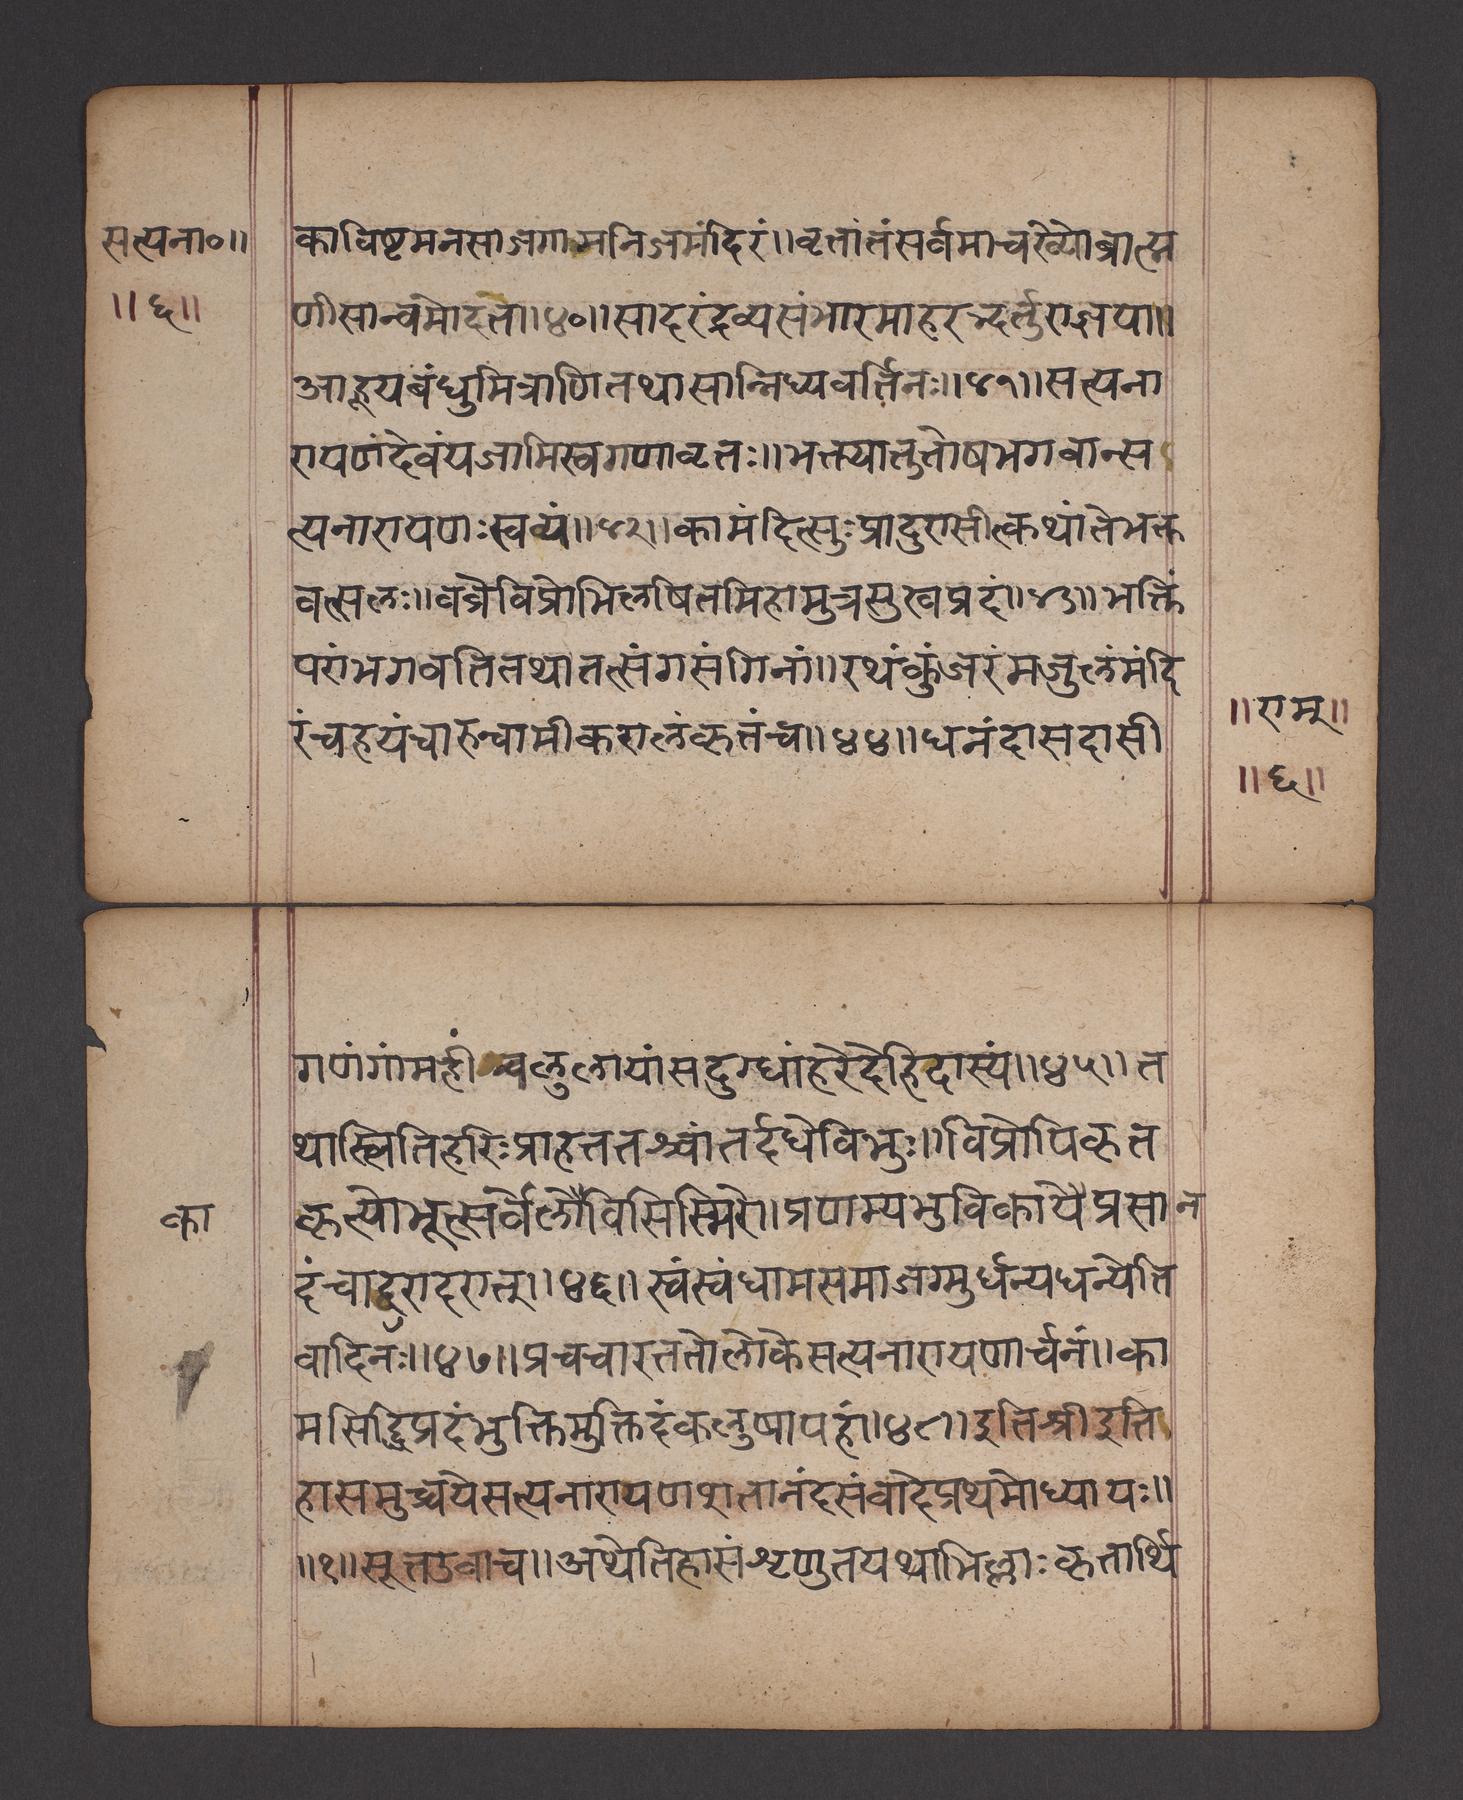 सत्यना०॥
॥६॥
काविष्टमनसाजगामनिजमंदिरं॥वृत्तांतंसर्वमाचख्यौब्राह्म
णीसान्वमोदत॥४०॥सादरंद्रव्यसंभारमाहरन्दर्तुराज्ञया॥
आहूयबंधुमित्राणितथासान्निध्यवर्तिनः॥४१॥सत्यना
रायणंदेवंयजामिस्वगणावृतः॥भक्त्यातुतोषभगवान्स
त्यनारायणःस्वयं॥४२॥कामंदित्सुःप्रादुरासीत्कथांतेभक्त
वत्सलः॥वव्रेविप्रोभिलषितमिहामुत्रसुखप्रदं॥४३॥भक्तिं
परांभगवतितथातत्संगसंगिनां॥रथंकुंजरंमजुलंमंदि
रंचहयंचारुचामीकरालंकृतंच॥४४॥धनंदासदासी
॥राम्॥
॥६॥
गणंगांमहींचलुलायांसदुग्धांहरेदेहिदास्यं॥४५॥त
थास्त्वितिहरिःप्राहततश्चांतर्दधेविभुः॥विप्रोपिकृत
का
कृत्योभूत्सर्वेलौविसिस्मिरे॥प्रणम्यभुविकायेप्रसा न
दंचादुरादरात्॥४६॥स्वंस्वंधामसमाजग्मुर्धन्यधन्येति
वादिनः॥४७॥प्रचचारततोलोकेसत्यनारायणार्चनं॥का
मसिद्धिप्रदंभुक्तिमुक्तिदंकलुषापहं॥४८॥इतिश्रीइति
हाससमुच्चयेसत्यनारायणशतानंदसंवादेप्रथमोध्यायः॥
॥१॥सूतउवाच॥अथेतिहासंशृणुतयथाभिल्लाःकृतार्थि